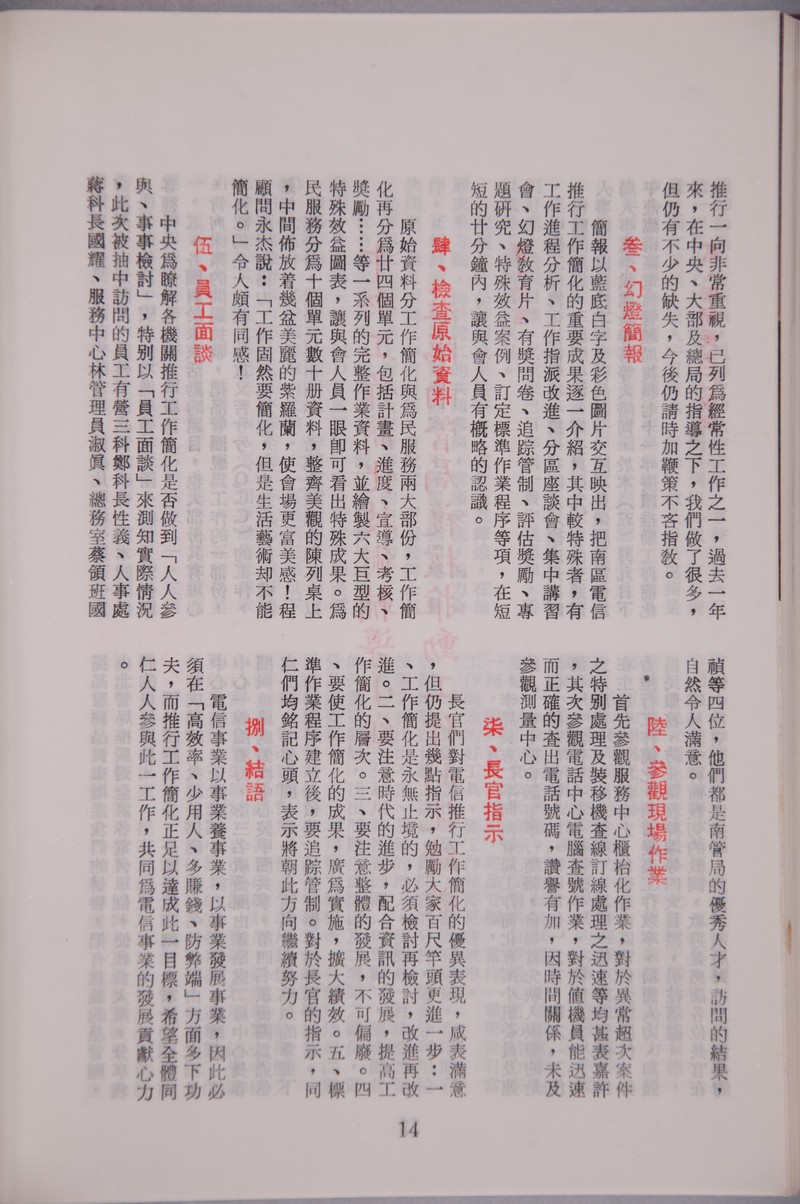 推行一向非常重視，已列爲經常性工作之一，過去一年
來，在中央、大部及總局的指導之下，我們做了很多，
但仍有不少的缺失，今後仍請時加鞭策不吝指教。
叁、幻燈簡報
簡報以藍底白字及彩色圖片交互映出，把南區電信
推行工作簡化的重要成果逐一介紹，其中較特殊者，有
工作進程分析、工作指派改進、分區座談會、集中講習
會、幻燈教育片、有獎問卷、追踪管制、評估獎勵、專
題研究、特殊效益案例、訂定標準作業程序等項，在短
短的廿分鐘內，讓與會人員有概略的認識。
肆、檢查原始資料
原始資料分工作簡化與爲民服務兩大部份，工作簡
化再分爲廿四個單元，包括計畫、進度、宣導、考核、
獎勵……等一系列的完整作業資料，並繪製六大巨型的
特殊效益圖表，讓與會人員一眼卽可看出特殊成果。爲
民服務分爲十個單元數十册資料，整齊美觀的陳列桌上
，中間佈放着幾盆美麗的紫羅蘭，使會場更富美感！程
顧問永杰說：「工作固然要簡化，但是生活藝術却不能
簡化。」令人頗有同感！
伍、員工面談
中央爲瞭解各機關推行工作簡化是否做到「人人參
與、事事檢討」，特別以「員工面談」來測知實際情況
，此次被抽中訪問的員工有營三科鄭科長性義、人事處
蔣科長國耀、服務中心林管理員淑眞、總務室蔡領班國
禎等四位，他們都是南管局的優秀人才，訪問的結果，
自然令人滿意。
陸、參觀現場作業
首先參觀服務中心櫃枱化作業，對於異常超次案件
之特別處理及裝移機查線訂線處理之迅速等均甚表嘉許
，其次參觀電話中心電腦查號作業，對於値機員能迅速
而正確的查出電話號碼，讚譽有加，因時間關係，未及
參觀測量中心。
柒、長官指示
長官們對電信推行工作簡化的優異表現，咸表滿意
，但仍提出幾點指示，勉勵大家百尺竿頭更進一步：一
、工作簡化是永無止境的，必須檢討再檢討，改進再改
進。二、要注意時代的進步，配合資訊的發展，提高工
作簡化的層次。三、要注意整體的發展，不可偏廢。四
、要使工作簡化的成果，廣爲實施，擴大績效。五、標
準作業程序建立後，要追踪管制。對於長官的指示，同
仁們均銘記心頭，表示將朝此方向繼續努力。
捌、結語
電信事業以事業養事業，以事業發展事業，因此必
須在「高效率、少用人、多賺錢、防弊端」方面多下功
夫，而推行工作簡化正足以達成此一目標，希望全體同
仁人人參與此一工作，共同爲電信事業的發展貢獻心力
。
14